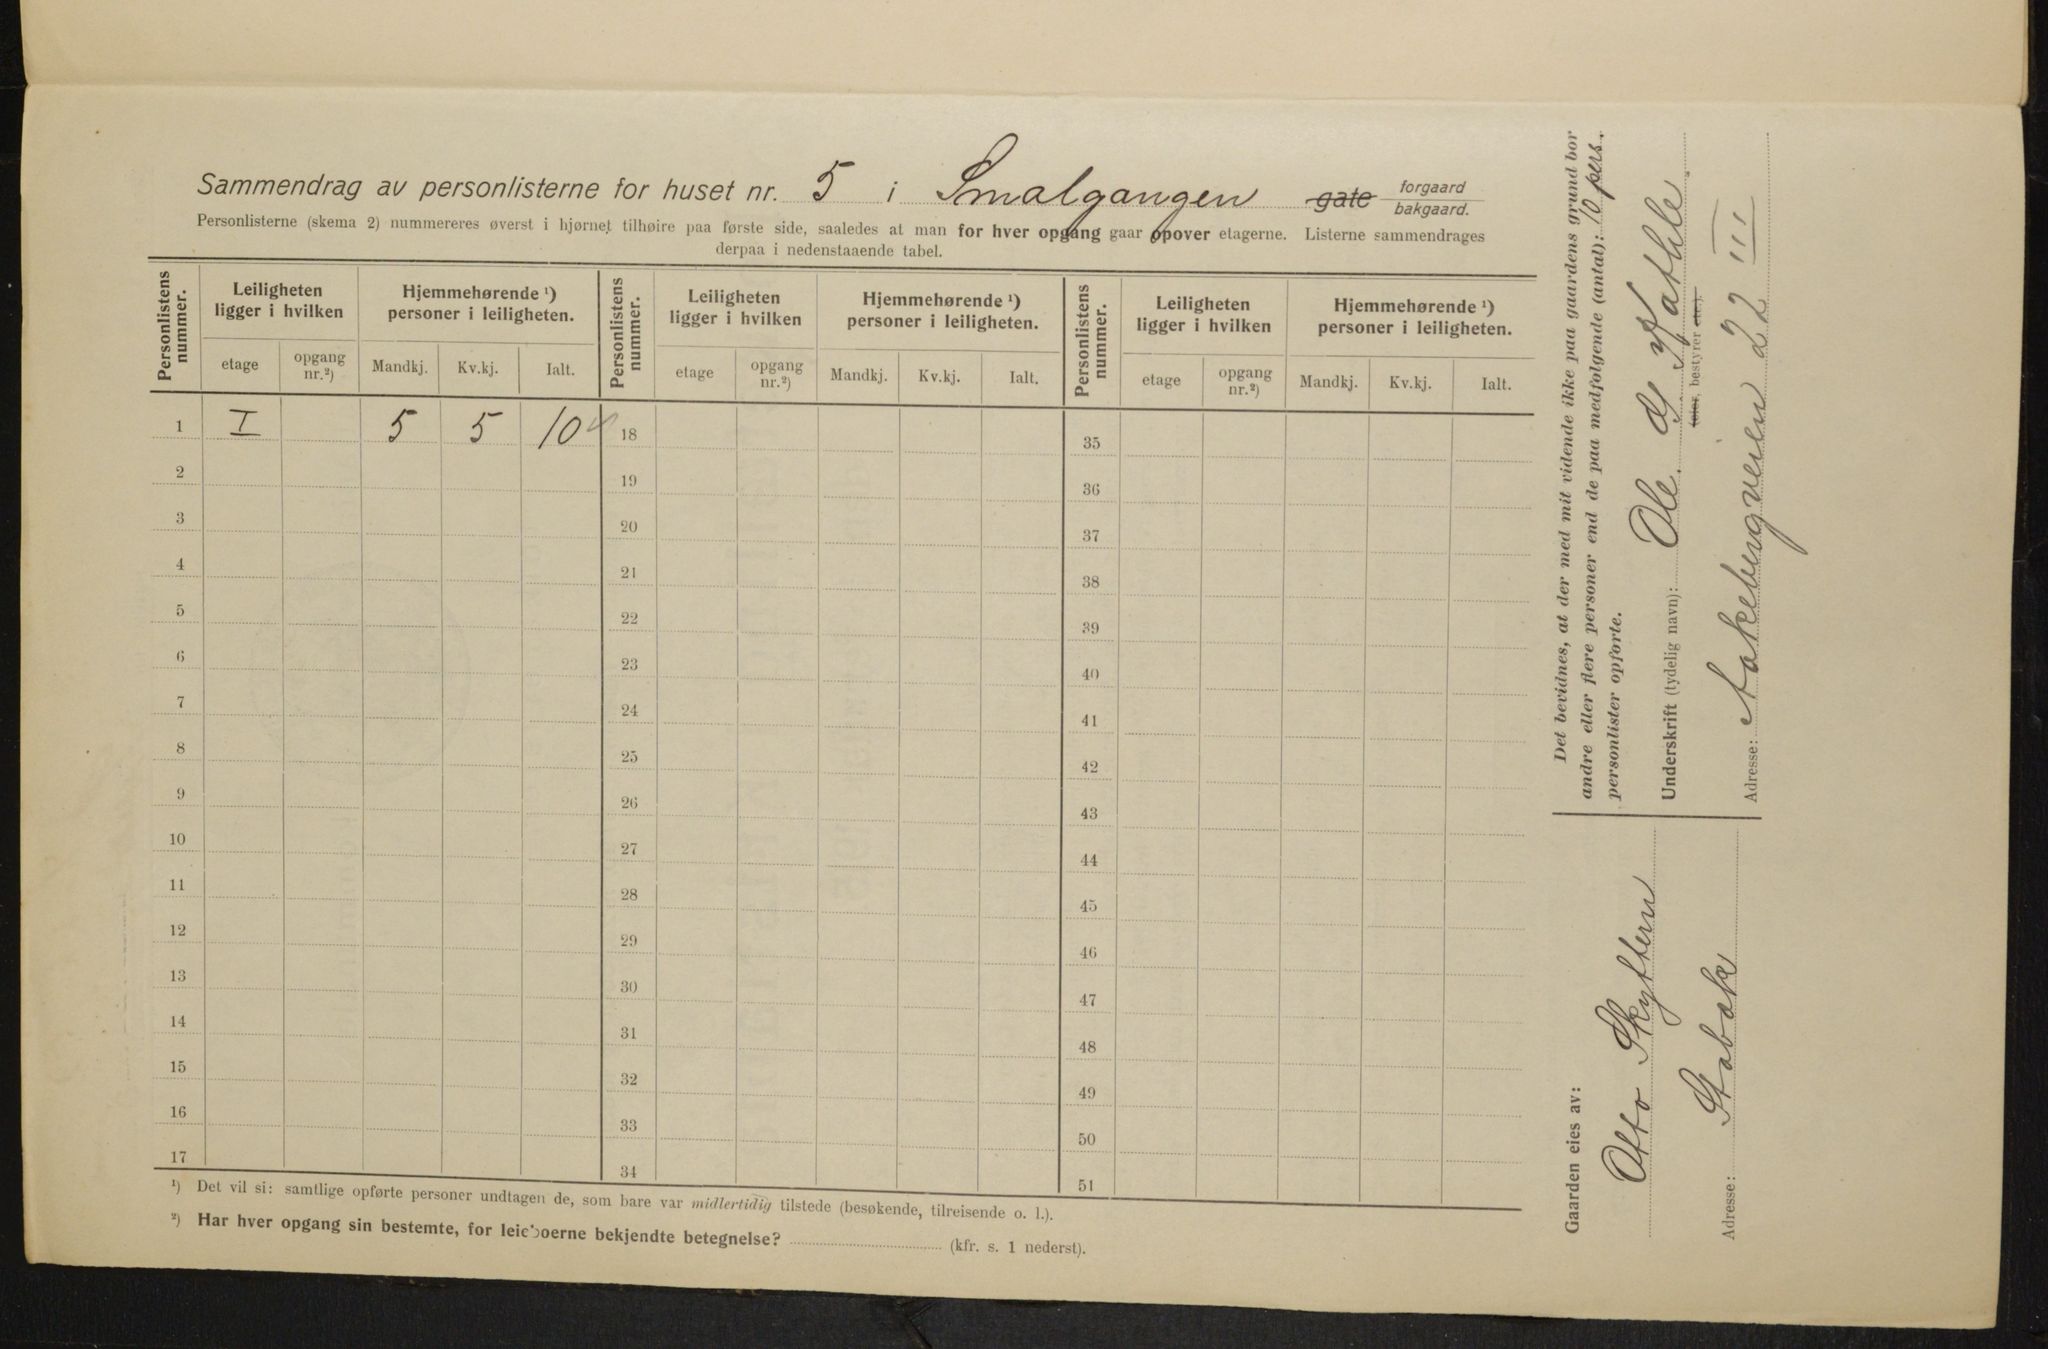 Sammendrag av personlisterne for huset nr. 5 i Smalgangen gate forgaard bakgaard.
Personlisterne (skema 2) nummereres øverst i hjørnet tilhøire paa første side, saaledes at man for hver opgang gaar opover etagerne. Listerne sammendrages
derpaa i nedenstaaende tabel.
Personlistens nummer. Leiligheten ligger i hvilken Hjemmehørende ¹) personer i leiligheten. Personlistens nummer. Leiligheten ligger i hvilken Hjemmehørende ¹) personer i leiligheten. Personlistens nummer. Leiligheten ligger i hvilken Hjemmehørende ¹) personer i leiligheten.
etage opgang nr.²) Mandkj. Kv.kj. Ialt. etage opgang nr.²) Mandkj. Kv.kj. Ialt. etage opgang nr.²) Mandkj. Kv.kj. Ialt.
1 I 5 5 10 18 35
2 19 36
3 20 37
4 21 38
5 22 39
6 23 40
7 24 41
8 25 42
9 26 43
10 27 44
11 28 45
12 29 46
13 30 47
14 31 48
15 32 49
16 33 50
17 34 51
¹) Det vil si: samtlige opførte personer undtagen de, som bare var midlertidig tilstede (besøkende, tilreisende o. l.).
²) Har hver opgang sin bestemte, for leieboerne bekjendte betegnelse? (kfr. s. 1 nederst).
Gaarden eies av:
Otto Skyttern
Adresse: Stabæk
Det bevidnes, at der med mit vidende ikke paa gaardens grund bor
andre eller flere personer end de paa medfølgende (antal): 10 pers.
personlister opførte.
Underskrift (tydelig navn): Ole
(eier, bestyrer etc).
Adresse: Aakebergveien 22 III